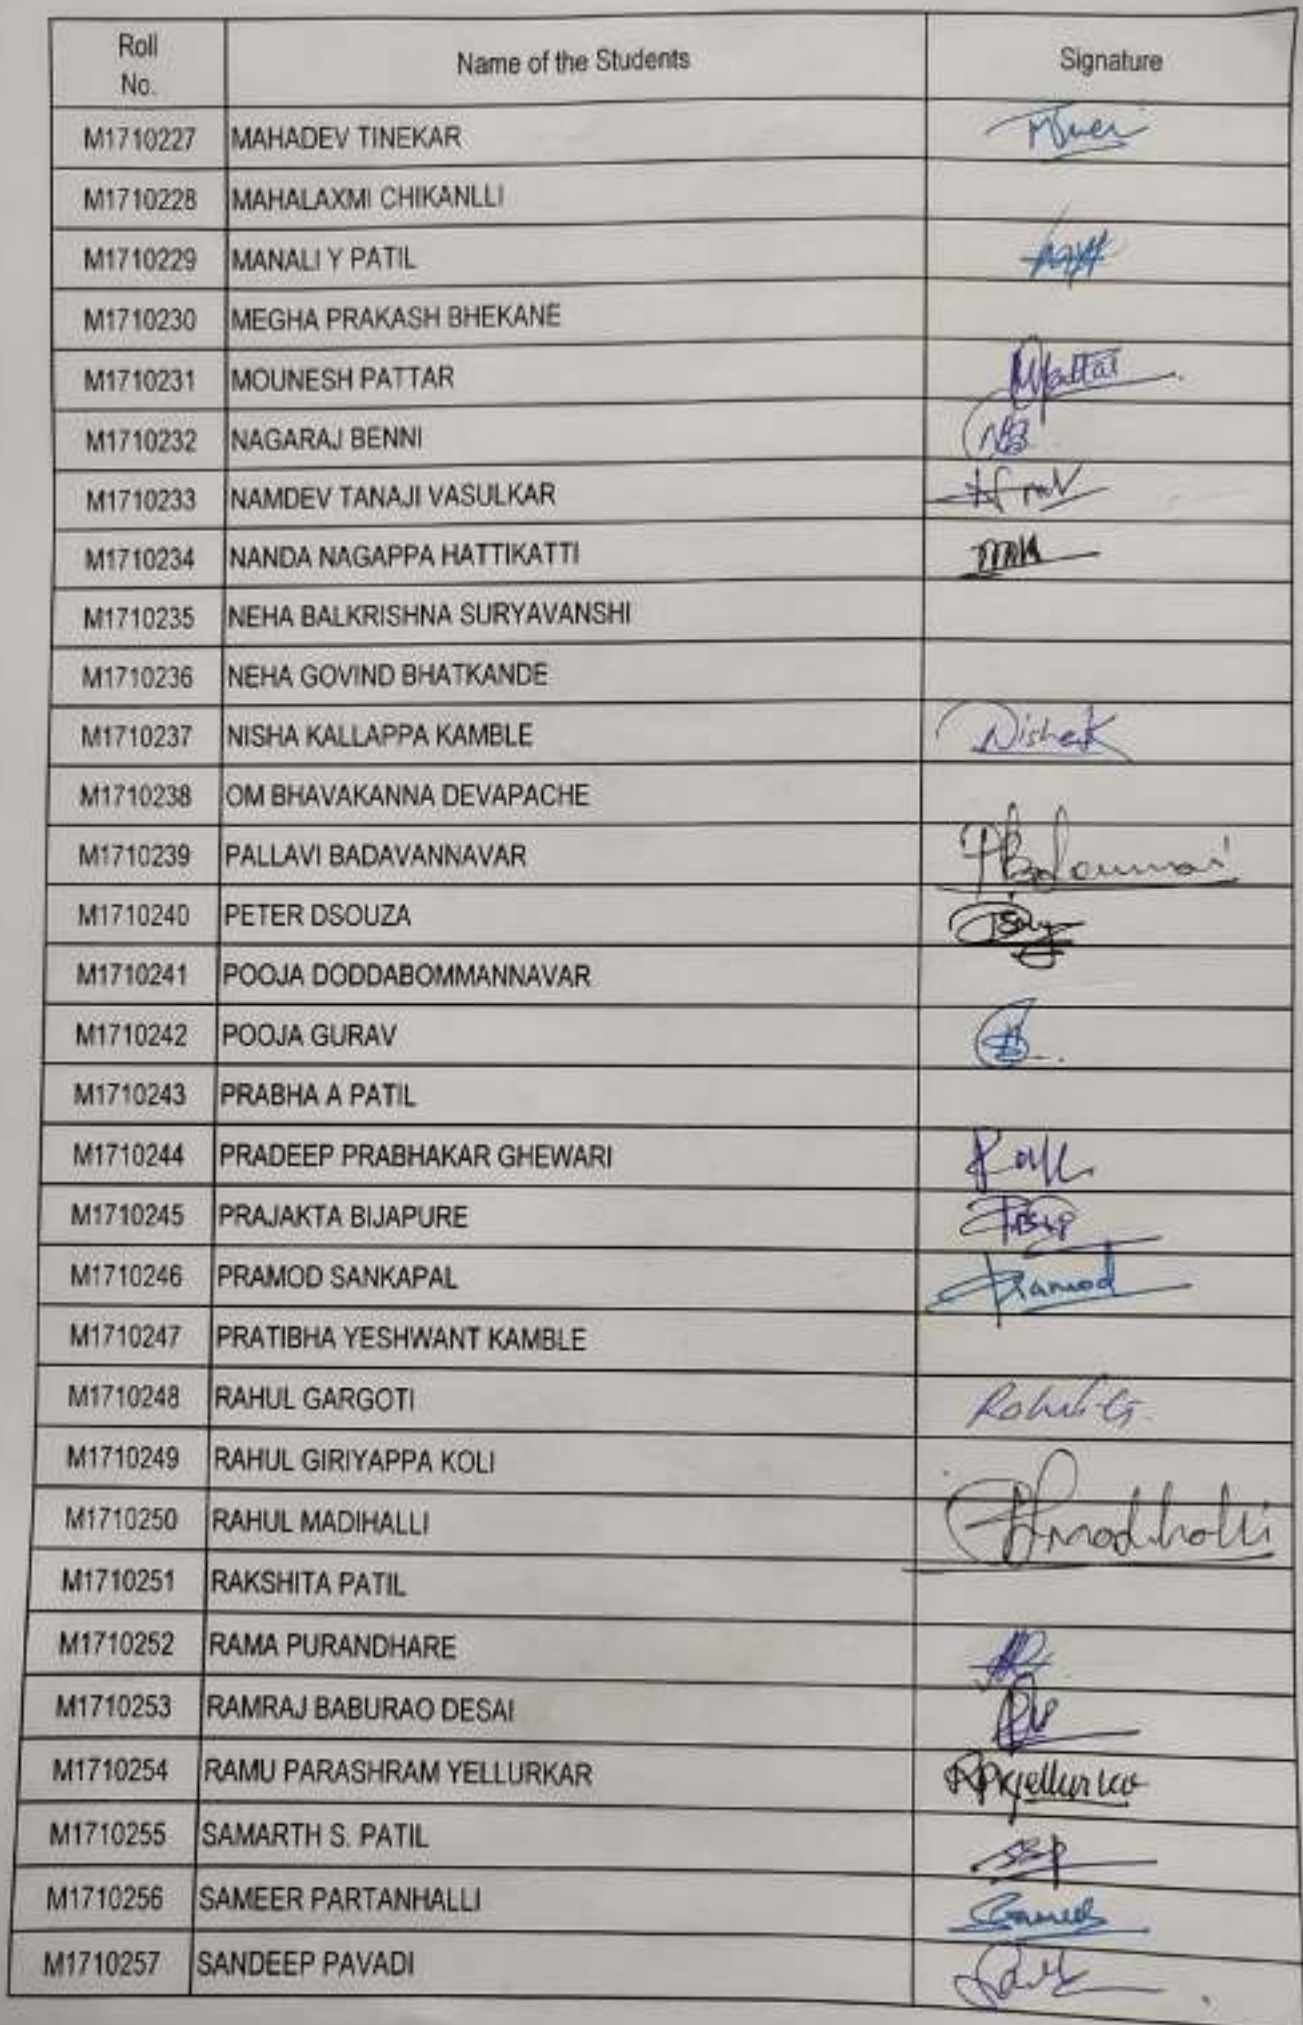 Roll No. Name of the Students Signature
M1710227 MAHADEV TINEKAR
M1710228 MAHALAXMI CHIKANLLI
M1710229 MANALI Y PATIL
M1710230 MEGHA PRAKASH BHEKANE
M1710231 MOUNESH PATTAR MPattar
M1710232 NAGARAJ BENNI NB
M1710233 NAMDEV TANAJI VASULKAR
M1710234 NANDA NAGAPPA HATTIKATTI
M1710235 NEHA BALKRISHNA SURYAVANSHI
M1710236 NEHA GOVIND BHATKANDE
M1710237 NISHA KALLAPPA KAMBLE NishaK
M1710238 OM BHAVAKANNA DEVAPACHE
M1710239 PALLAVI BADAVANNAVAR
M1710240 PETER DSOUZA
M1710241 POOJA DODDABOMMANNAVAR
M1710242 POOJA GURAV
M1710243 PRABHA A PATIL
M1710244 PRADEEP PRABHAKAR GHEWARI
M1710245 PRAJAKTA BIJAPURE
M1710246 PRAMOD SANKAPAL Pramod
M1710247 PRATIBHA YESHWANT KAMBLE
M1710248 RAHUL GARGOTI Rahul.G.
M1710249 RAHUL GIRIYAPPA KOLI
M1710250 RAHUL MADIHALLI
M1710251 RAKSHITA PATIL
M1710252 RAMA PURANDHARE
M1710253 RAMRAJ BABURAO DESAI
M1710254 RAMU PARASHRAM YELLURKAR RPYellurkar
M1710255 SAMARTH S. PATIL SSP
M1710256 SAMEER PARTANHALLI Sameer
M1710257 SANDEEP PAVADI